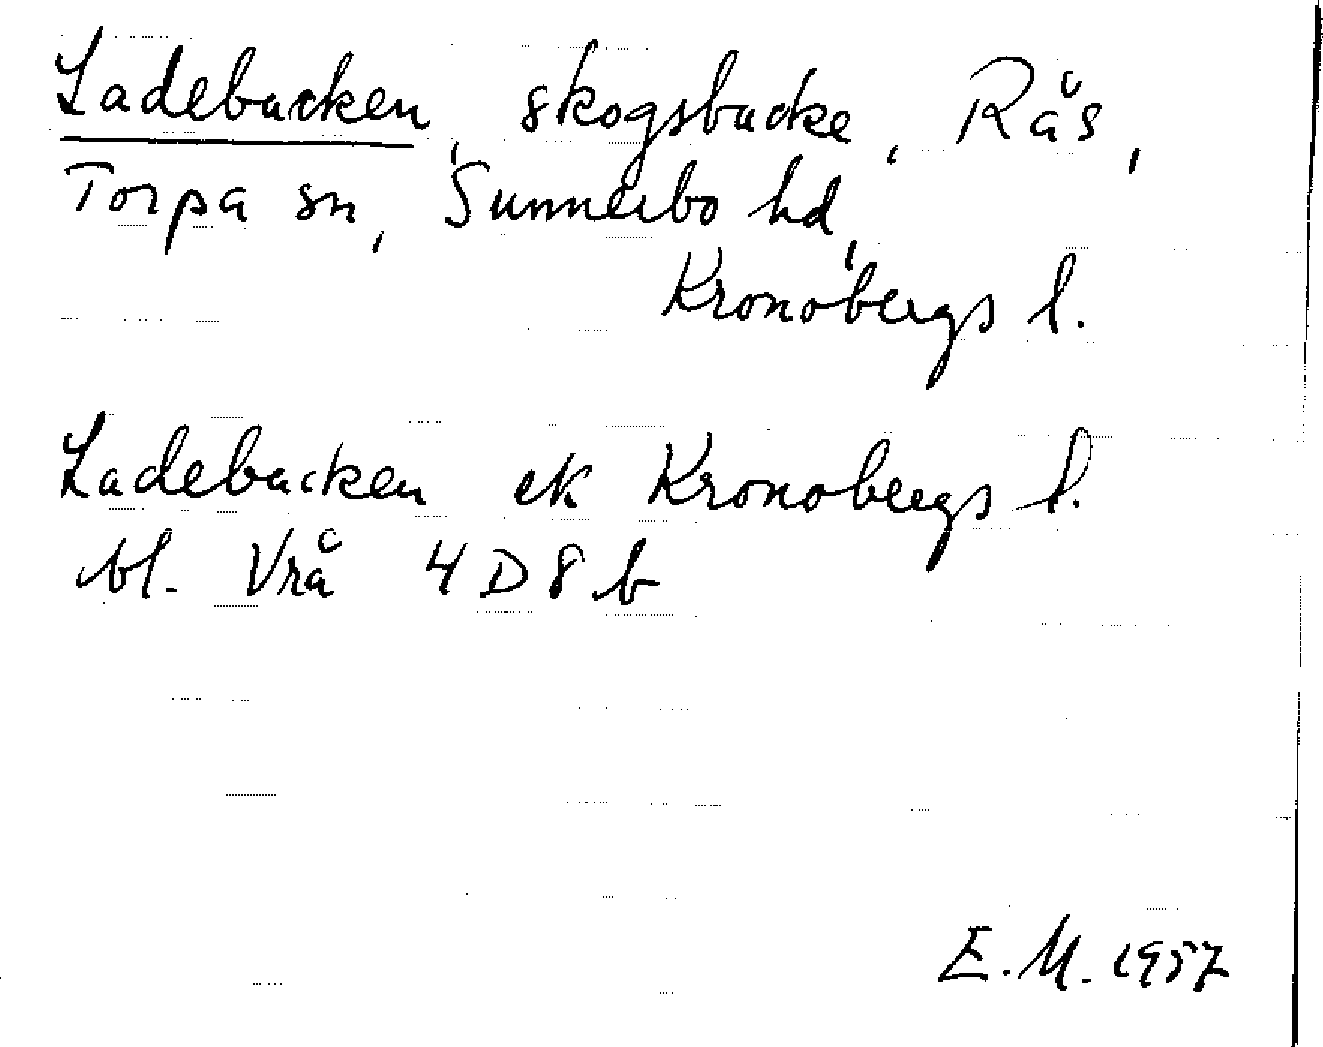 Ladebacken, skogsbacke, Rås,
Torpa sn, Sunnerbo hd,
Kronobergs l.
Ladebacken ek Kronobergs l.
bl. Vrå 4D8b
E.M. 1957